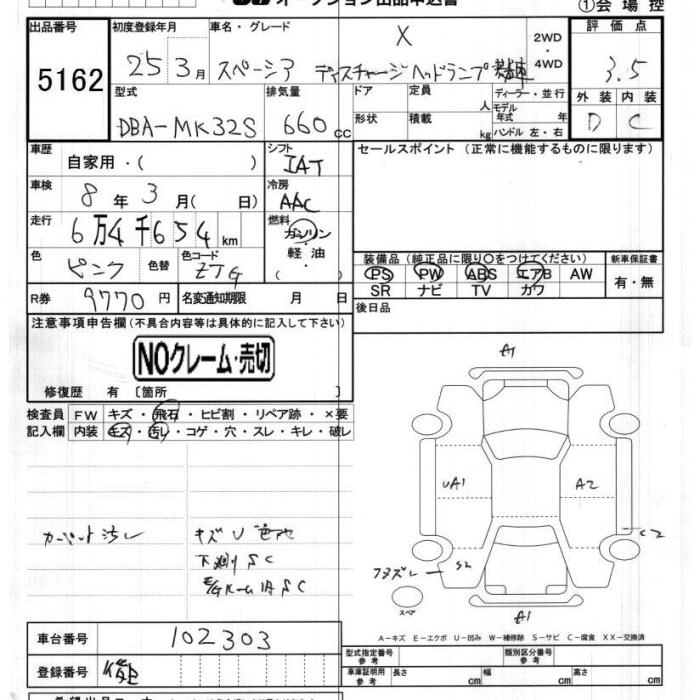 オークション出品申込書
①会場控
出品番号 5162
初度登録年月 25 3月
車名・グレード スペーシア X ディスチャージヘッドランプ
2WD・4WD
評価点 3.5
外装 内装
D C
型式 DBA-MK32S
排気量 660 cc
ドア 定員 人
形状 積載 kg
ディーラー・並行
モデル年式 年
ハンドル 左・右
車歴 自家用・( )
シフト IAT
セールスポイント(正常に機能するものに限ります)
車検 8年 3月( 日)
冷房 AAC
走行 6万4千654km
燃料 ガソリン・軽油・( )
色 ピンク 色替 色コード ZTG
装備品(純正品に限り○をつけてください) 新車保証書
PS PW ABS エアB AW 有・無
SR ナビ TV カワ
R券 9770円 名変通知期限 月 日
後日品
注意事項申告欄(不具合内容等は具体的に記入して下さい)
NOクレーム・売切
修復歴 有〔箇所 〕
検査員記入欄
FW キズ・飛石・ヒビ割・リペア跡・×要
内装 キズ・汚レ・コゲ・穴・スレ・キレ・破レ
カーペット汚レ
キズU
下廻りSC
SC
A1
UA1
A2
C2
S2
A1
スペア
A-キズ E-エクボ U-凹み W-補修跡 S-サビ C-腐食 XX-交換済
車台番号 102303
登録番号
型式指定番号 参考 類別区分番号 参考
車庫証明用 参考 長さ cm 幅 cm 高さ cm